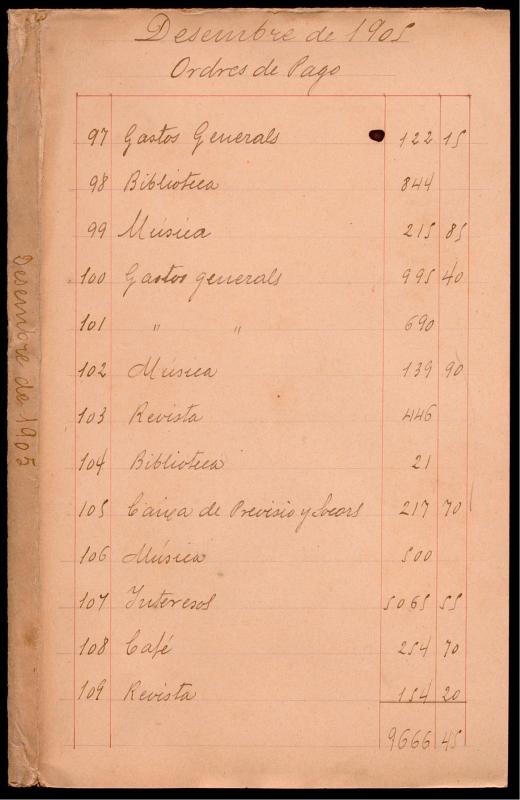 Desembre de 1905
Ordres de Pago
97 Gastos Generals 122 15
98 Biblioteca 844
99 Música 215 85
100 Gastos generals 995 40
101 " " 690
102 Música 139 90
103 Revista 446
104 Biblioteca 21
105 Caixa de Previsio y Socors 217 70
106 Música 500
107 Interesos 5065 55
108 Café 254 70
109 Revista 154 20
9666 45
Desembre de 1905